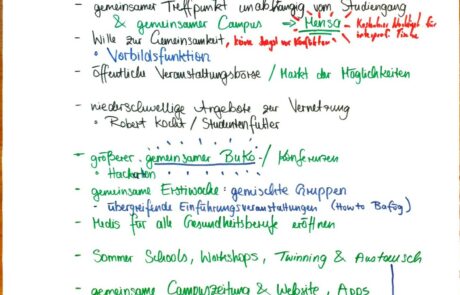 - gemeinsamer Treffpunkt unabhängig vom Studiengang
& gemeinsamer Campus → Mensa
Kostenloser Mittagst. für
interprof. Tische
- Wille zur Gemeinsamkeit, keine Angst vor Konflikten
° Vorbildsfunktion
- öffentliche Veranstaltungsbörse / Markt der Möglichkeiten
- niederschwellige Angebote zur Vernetzung
° Robert kocht / Studentenfutter
- größerer gemeinsamer BuKo / Konferenzen
° Hackaton
- gemeinsame Erstiwoche: gemischte Gruppen
- übergreifende Einführungsveranstaltungen (How to Bafög)
- Medis für alle Gesundheitsberufe eröffnen
- Sommer Schools, Workshops, Twinning & Austausch
- gemeinsame Campuszeitung & Website, Apps